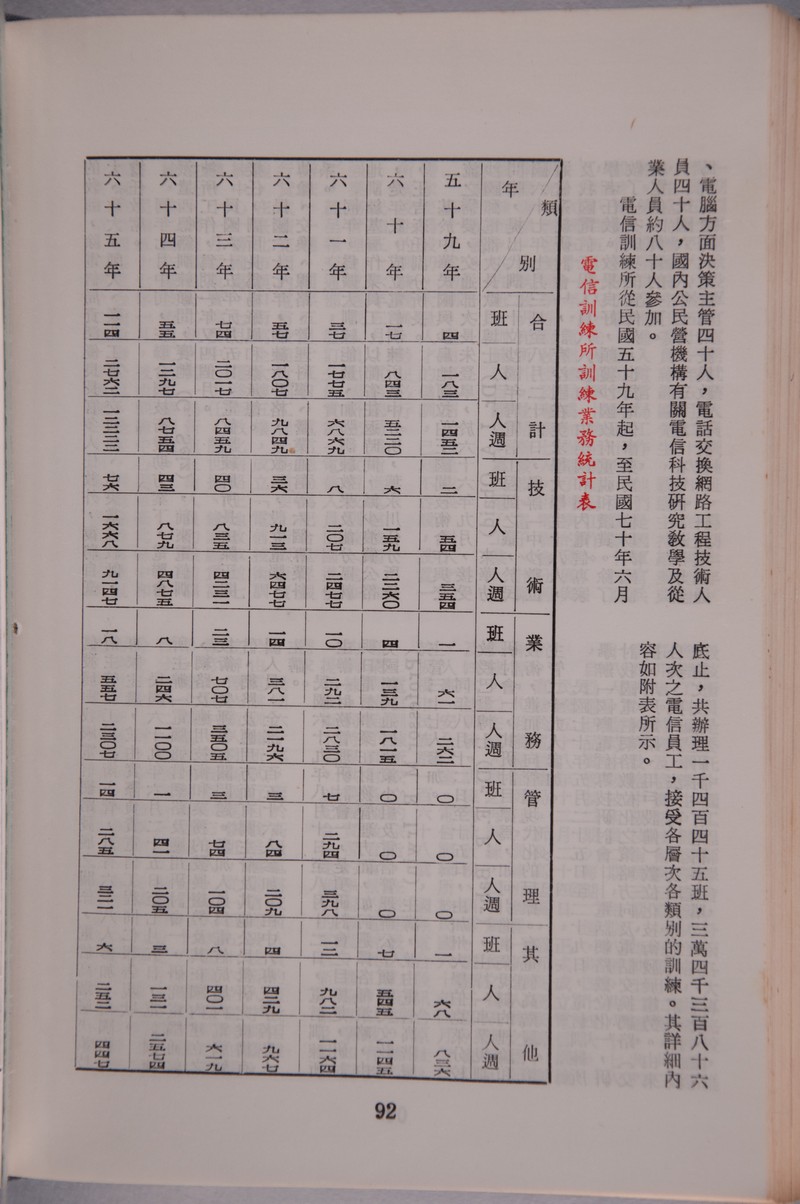 、電腦方面決策主管四十人，電話交換網路工程技術人
員四十人，國內公民營機構有關電信科技研究教學及從
業人員約八十人參加。
電信訓練所從民國五十九年起，至民國七十年六月
底止，共辦理一千四百四十五班，三萬四千三百八十六
人次之電信員工，接受各層次各類別的訓練。其詳細內
容如附表所示。
電信訓練所訓練業務統計表
年 類別 合計 技術 業務 管理 其他
班 人 人週 班 人 人週 班 人 人週 班 人 人週 班 人 人週
五十九年 四 一八三 一四五二 二 五四 三五四 一 六一 二六二 〇 〇 〇 一 六八 八三六
六十年 一七 八四三 五三二〇 六 一五九 二三六〇 四 一三九 一八一五 〇 〇 〇 七 五四五 一一四五
六十一年 三七 一七七五 六八六九 八 二〇七 二四七七 一〇 二九二 二八三〇 七 二九四 三九八 一二 九八二 一一六四
六十二年 五七 一八〇七 九八四九 三六 九一三 六四七七 一四 三八一 二一九六 三 八四 二〇九 四 四二九 九六七
六十三年 七四 二〇一七 八四五九 四〇 八三五 四二三一 二三 七〇七 三五〇五 三 七四 一〇四 八 四〇一 六一九
六十四年 五五 一二九七 八七五四 四三 八七九 四八七五 八 二四六 一一〇〇 一 四一 二〇五 三 一三一 二五七四
六十五年 一一四 二七六二 一二二二二 七六 一六六八 九一四七 一八 五五七 二三〇七 一四 二八五 三二一 六 二五二 四四七
92